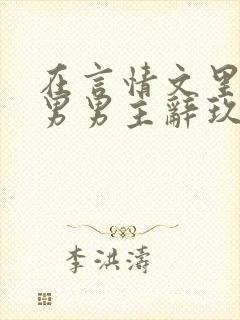 在言情文里
男男主辞玖
李洪涛